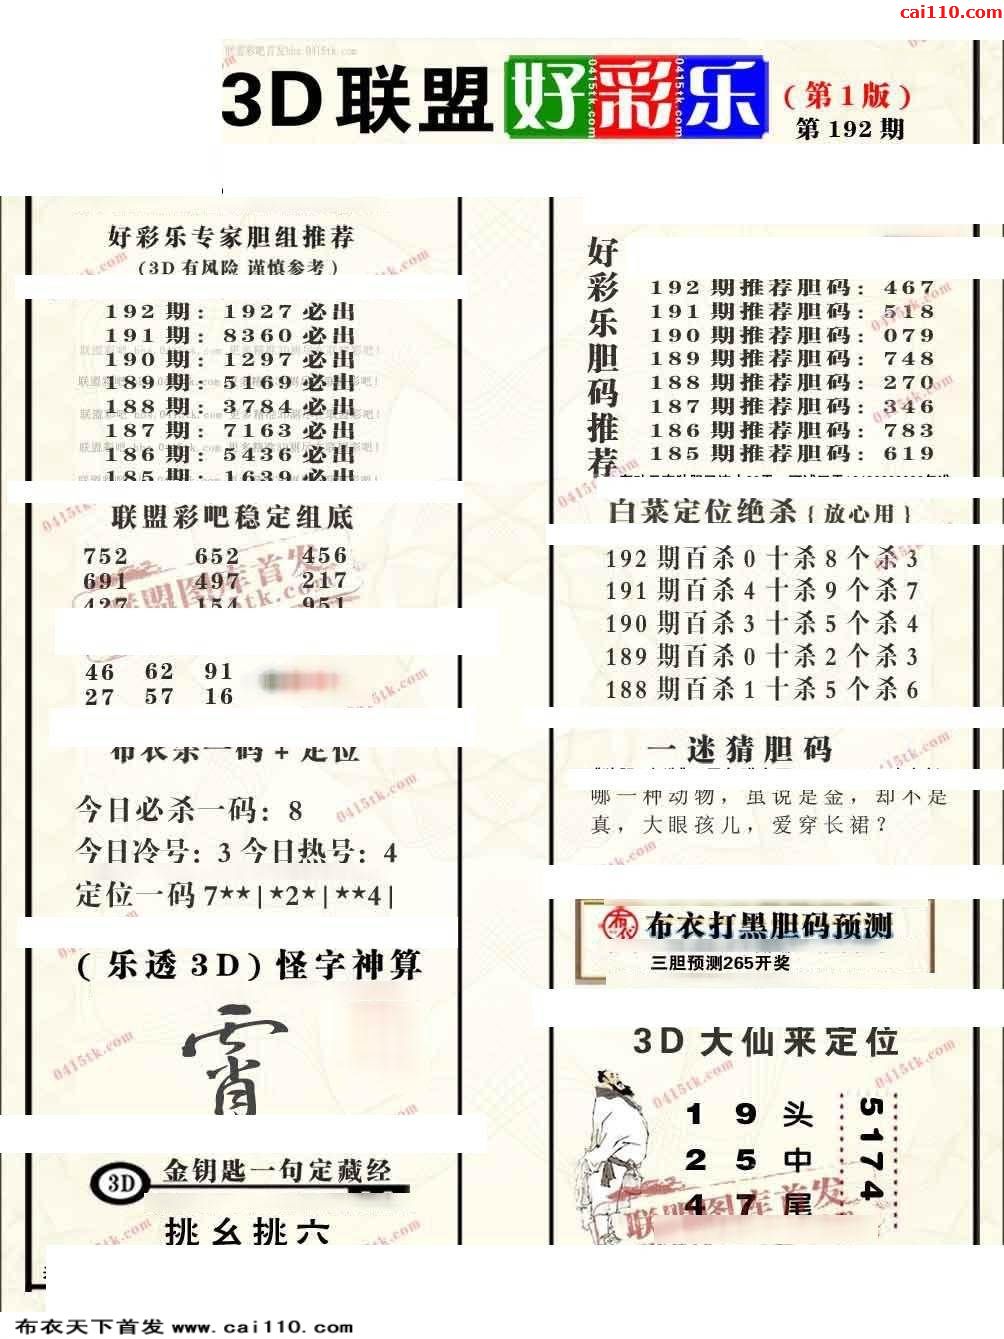 cai110.com
3D联盟好彩乐(第1版)
第192期
好彩乐专家胆组推荐
(3D有风险 谨慎参考)
192期: 1927必出
191期: 8360必出
190期: 1297必出
189期: 5169必出
188期: 3784必出
187期: 7163必出
186期: 5436必出
185期: 1639必出
联盟彩吧稳定组底
752 652 456
691 497 217
427 154 951
46 62 91
27 57 16
布衣杀一码+定位
今日必杀一码: 8
今日冷号: 3 今日热号: 4
定位一码7**|*2*|**4|
(乐透3D)怪字神算
霄
3D 金钥匙一句定藏经
挑幺挑六
好彩乐胆码推荐
192期推荐胆码: 467
191期推荐胆码: 518
190期推荐胆码: 079
189期推荐胆码: 748
188期推荐胆码: 270
187期推荐胆码: 346
186期推荐胆码: 783
185期推荐胆码: 619
白菜定位绝杀{放心用}
192期百杀0十杀8个杀3
191期百杀4十杀9个杀7
190期百杀3十杀5个杀4
189期百杀0十杀2个杀3
188期百杀1十杀5个杀6
一迷猜胆码
哪一种动物，虽说是金，却不是
真，大眼孩儿，爱穿长裙？
布衣打黑胆码预测
三胆预测265开奖
3D大仙来定位
1 9 头
2 5 中
4 7 尾
5174
联盟图库首发
0415tk.com
布衣天下首发 www.cai110.com